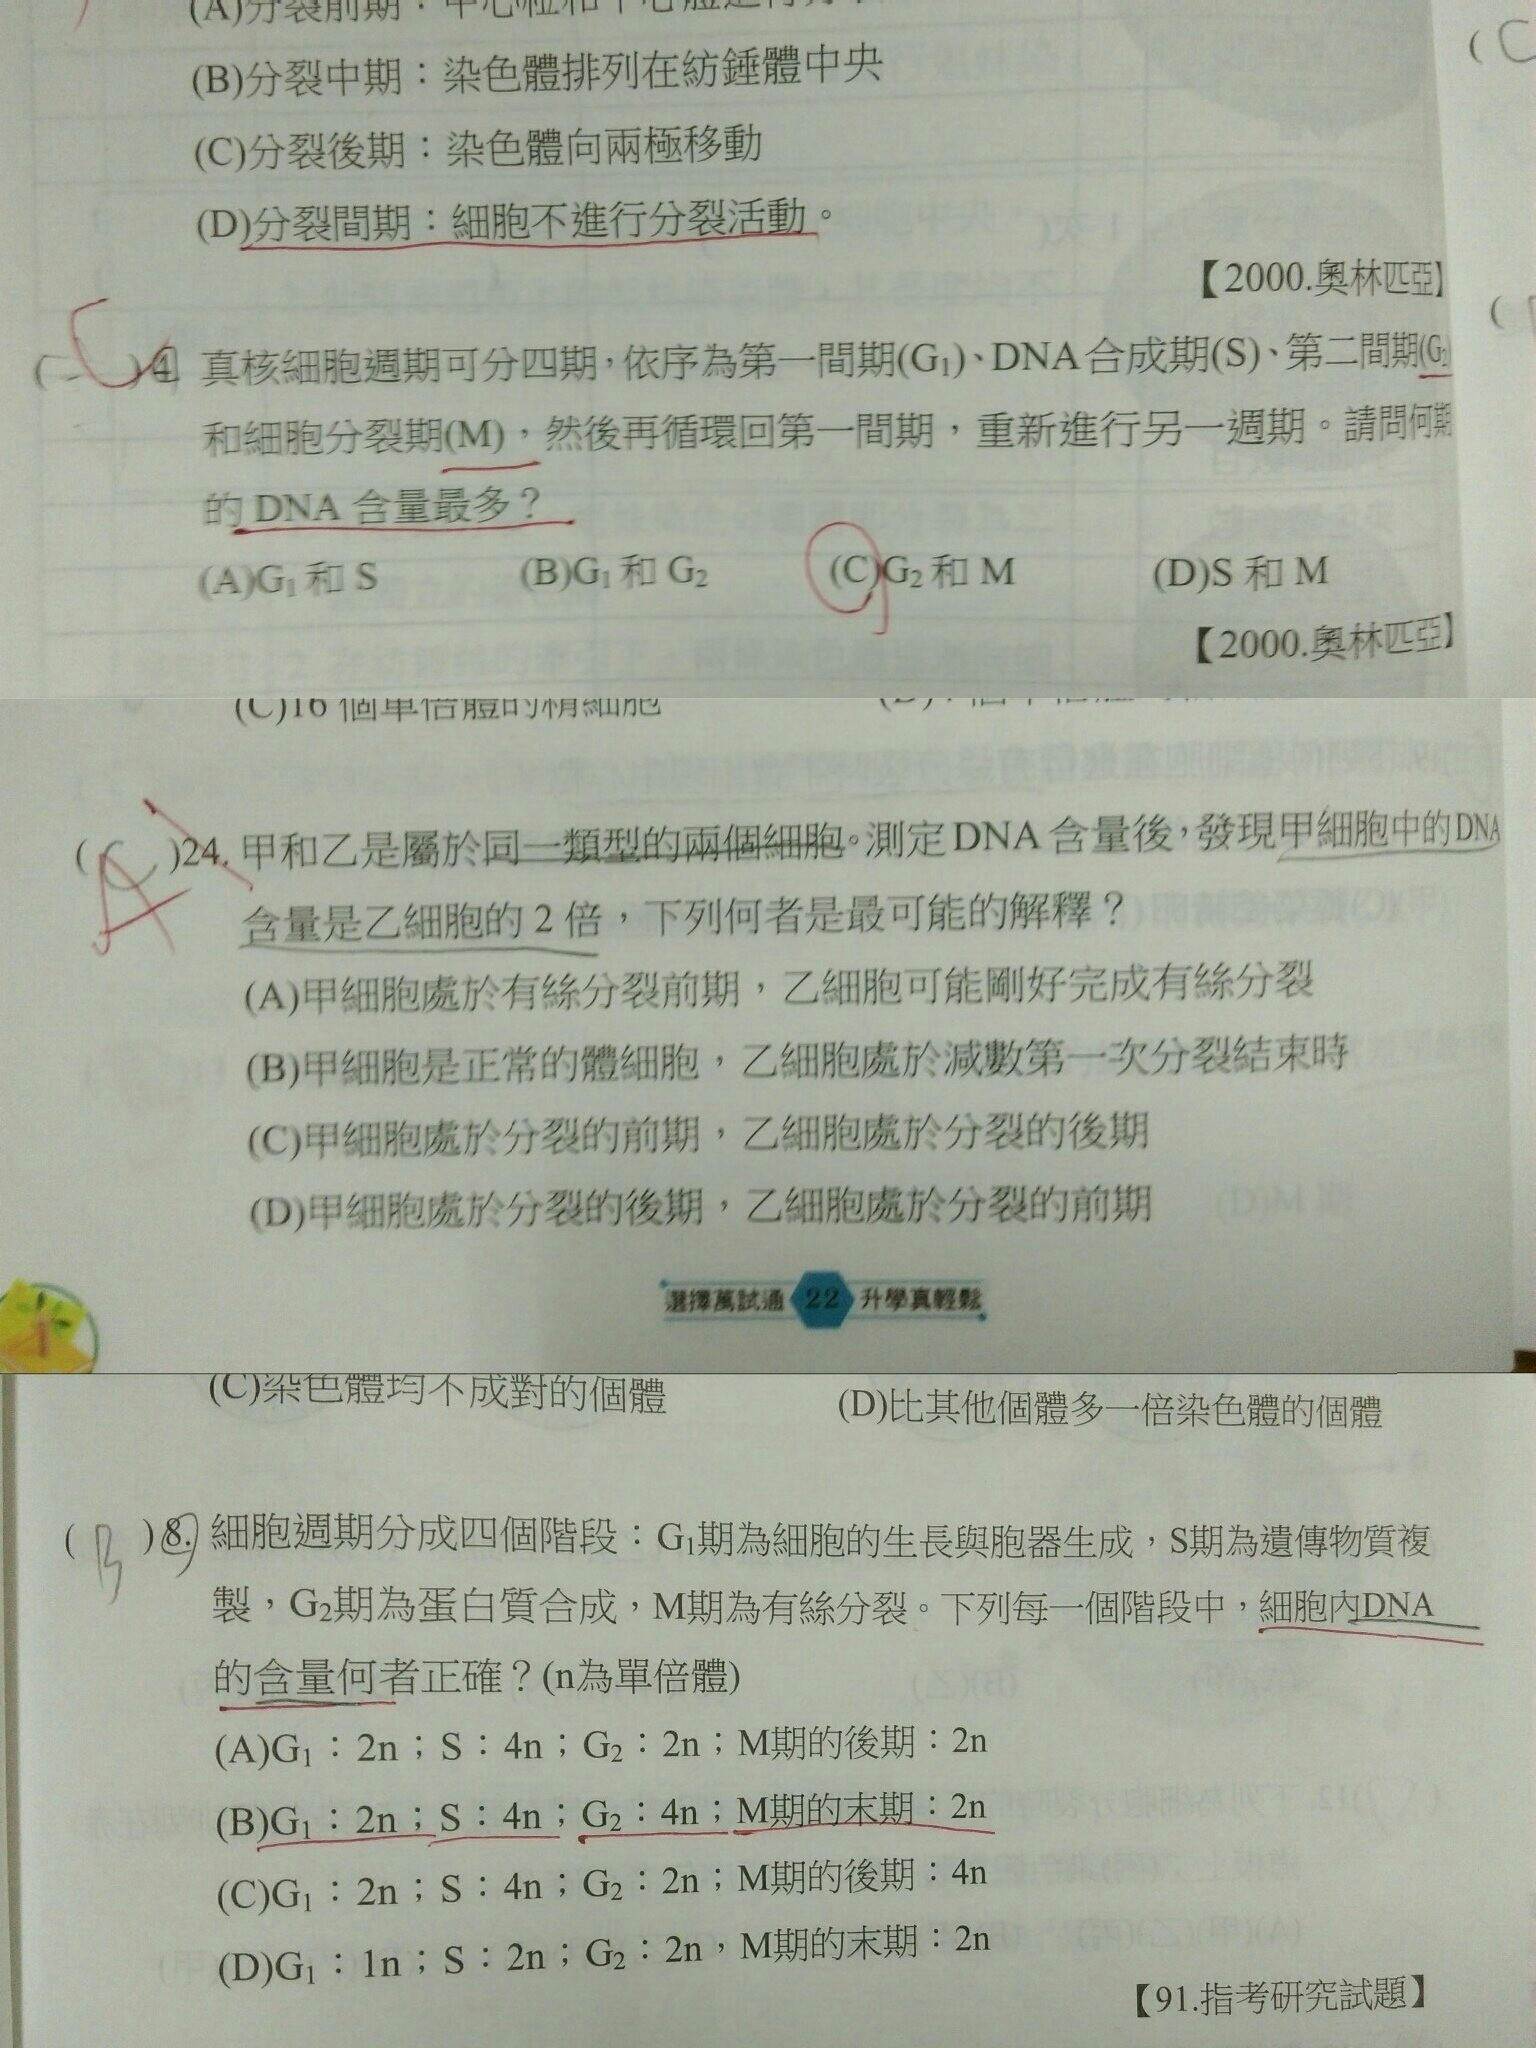 (A)分裂前期：中心粒和中心體進行分
(B)分裂中期：染色體排列在紡錘體中央
(C)分裂後期：染色體向兩極移動
(D)分裂間期：細胞不進行分裂活動。
【2000.奧林匹亞】
(C)4. 真核細胞週期可分四期，依序為第一間期(G₁)、DNA合成期(S)、第二間期(G₂
和細胞分裂期(M)，然後再循環回第一間期，重新進行另一週期。請問何期
的 DNA 含量最多？
(A)G₁ 和 S (B)G₁ 和 G₂ (C)G₂ 和 M (D)S 和 M
【2000.奧林匹亞】
(C)16 個單倍體的精細胞
(C)24. 甲和乙是屬於同一類型的兩個細胞。測定DNA含量後，發現甲細胞中的DNA
A
含量是乙細胞的 2 倍，下列何者是最可能的解釋？
(A)甲細胞處於有絲分裂前期，乙細胞可能剛好完成有絲分裂
(B)甲細胞是正常的體細胞，乙細胞處於減數第一次分裂結束時
(C)甲細胞處於分裂的前期，乙細胞處於分裂的後期
(D)甲細胞處於分裂的後期，乙細胞處於分裂的前期
選擇萬試通 22 升學真輕鬆
(C)染色體均不成對的個體 (D)比其他個體多一倍染色體的個體
(B)8. 細胞週期分成四個階段：G₁期為細胞的生長與胞器生成，S期為遺傳物質複
製，G₂期為蛋白質合成，M期為有絲分裂。下列每一個階段中，細胞內DNA
的含量何者正確？(n為單倍體)
(A)G₁：2n；S：4n；G₂：2n；M期的後期：2n
(B)G₁：2n；S：4n；G₂：4n；M期的末期：2n
(C)G₁：2n；S：4n；G₂：2n；M期的後期：4n
(D)G₁：1n；S：2n；G₂：2n，M期的末期：2n
【91.指考研究試題】